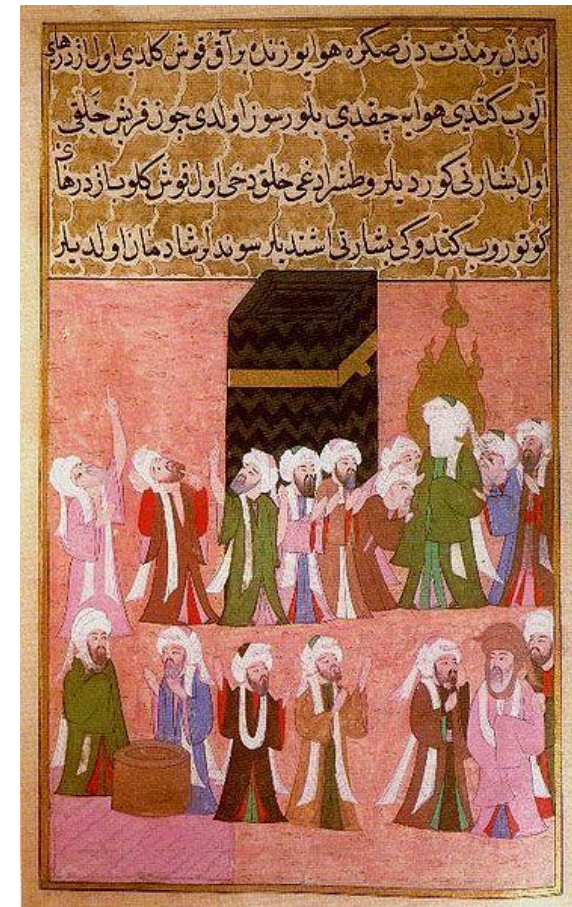 اندن بر مدت دن صكره هوا یوزندن بر آق قوش كلدی اول اژدرهای
آلوب كتدی هوایه چقدی بلورسوز اولدی چون قریش خلقی
اول بشارتی كوردیلر وطشرادغی خلق دخی اول قوش كلوب اژدرهای
كوتوروب كتدوكی بشارتی اشتدیلر سوندلر شادمان اولدیلر